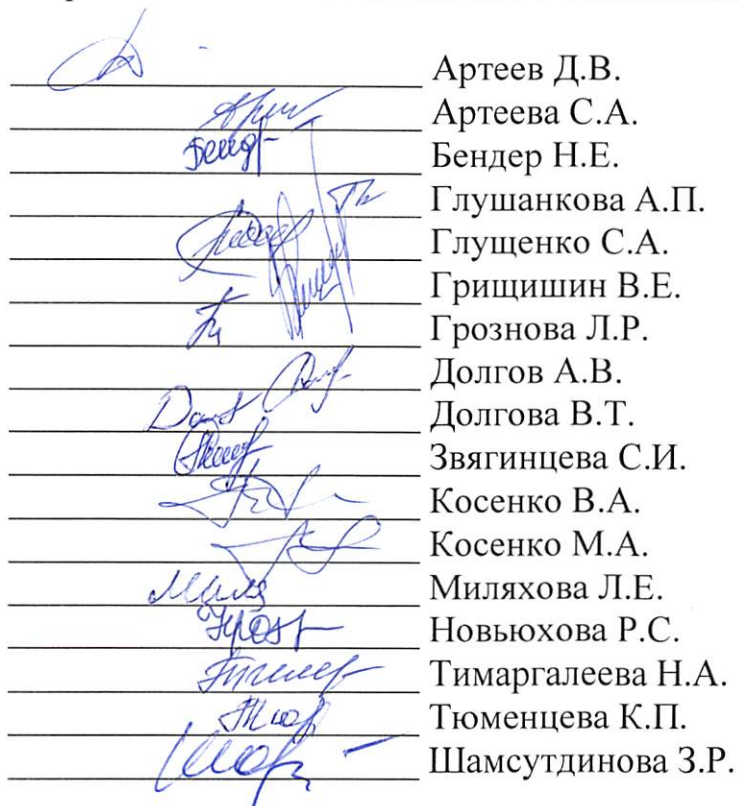 Артеев Д.В.
Артеева С.А.
Бендер Н.Е.
Глушанкова А.П.
Глущенко С.А.
Грищишин В.Е.
Грознова Л.Р.
Долгов А.В.
Долгова В.Т.
Звягинцева С.И.
Косенко В.А.
Косенко М.А.
Миляхова Л.Е.
Новьюхова Р.С.
Тимаргалеева Н.А.
Тюменцева К.П.
Шамсутдинова З.Р.